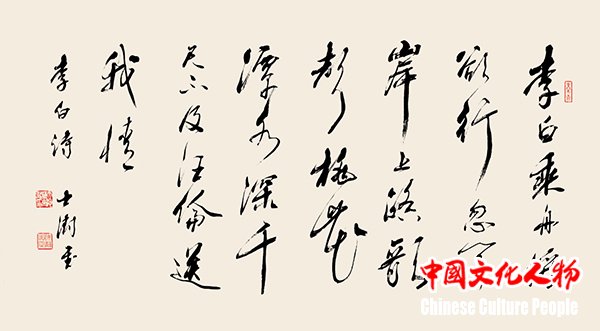 李白乘舟將
欲行忽聞
岸上踏歌
聲桃花
潭水深千
尺不及汪倫送
我情
李白詩
士澍書
中國文化人物
Chinese Culture People